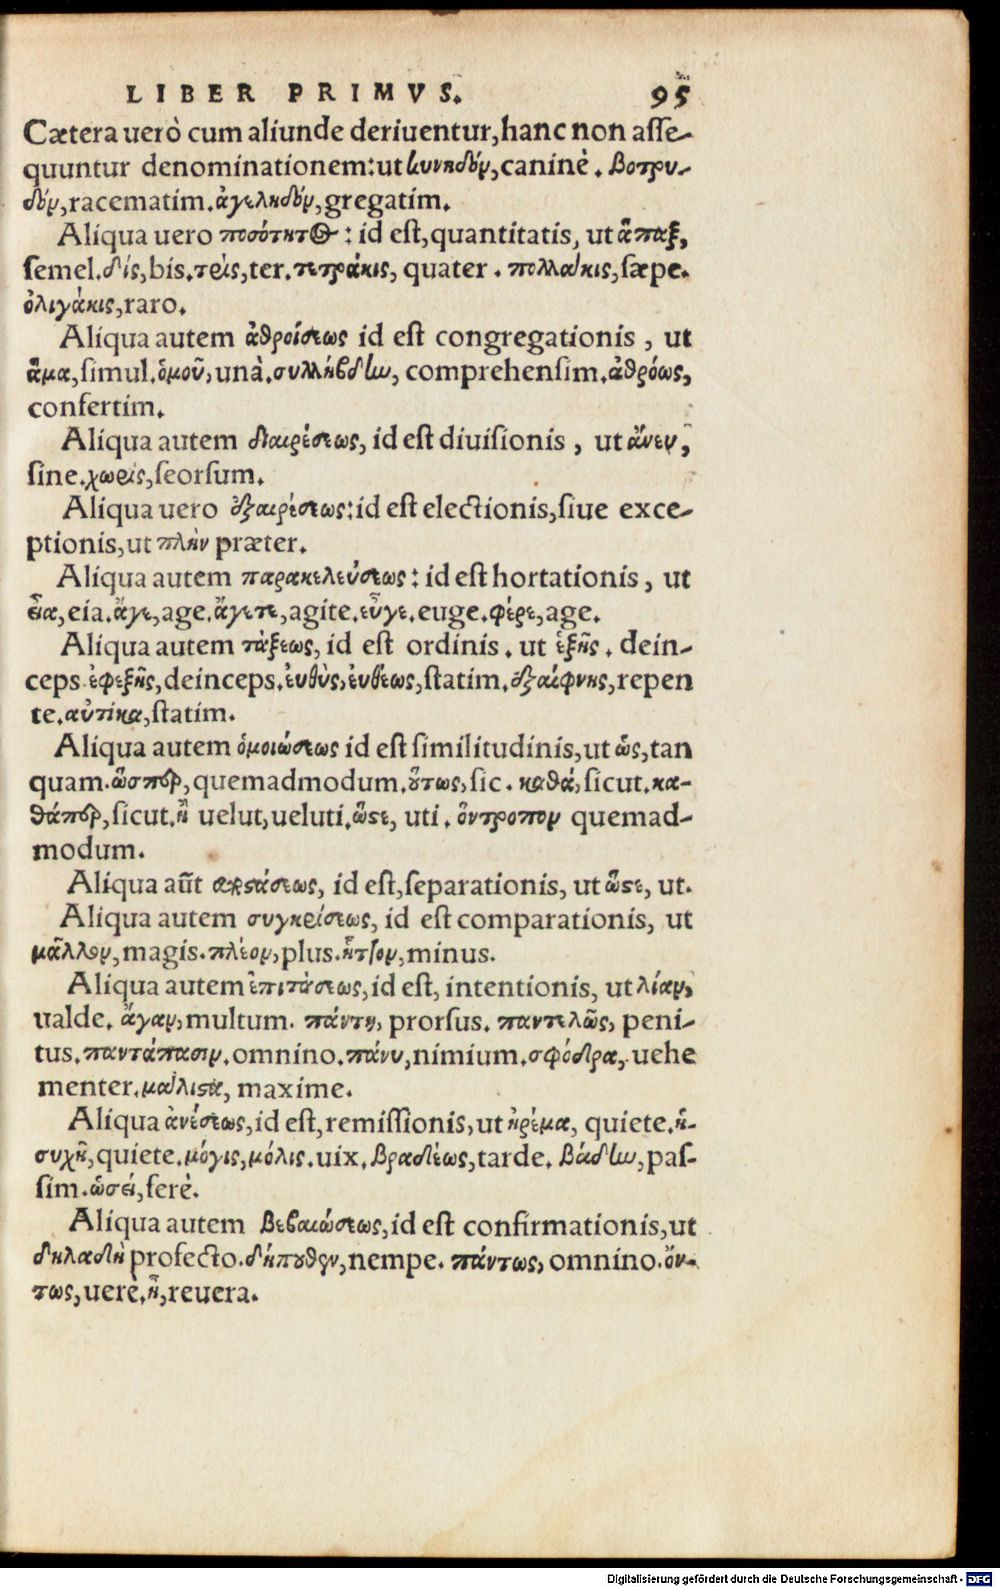 LIBER PRIMVS. 95
Cætera uerò cum aliunde deriuentur, hanc non asse-
quuntur denominationem: ut κυνηδόν, caninè. βοτρυ-
δόν, racematim. ἀγεληδόν, gregatim.
Aliqua uero ποσότητος: id est, quantitatis, ut ἅπαξ,
semel. δίς, bis. τρίς, ter. τετράκις, quater. πολλάκις, sæpe.
ὀλιγάκις, raro.
Aliqua autem ἀθροίσεως id est congregationis, ut
ἅμα, simul. ὁμοῦ, unà. συλλήβδην, comprehensim. ἀθρόως,
confertim.
Aliqua autem διαιρέσεως, id est diuisionis, ut ἄνευ,
sine. χωρίς, seorsum.
Aliqua uero ἐξαιρέσεως: id est electionis, siue exce-
ptionis, ut πλὴν præter.
Aliqua autem παρακελεύσεως: id est hortationis, ut
εἶα, eia. ἄγε, age. ἄγετε, agite. εὖγε. euge. φέρε, age.
Aliqua autem τάξεως, id est ordinis. ut ἑξῆς. dein-
ceps ἐφεξῆς, deinceps. ἐυθὺς, ἐυθέως, statim. ἐξαίφνης, repen
te. αὐτίκα, statim.
Aliqua autem ὁμοιώσεως id est similitudinis, ut ὡς, tan
quam. ὥσπερ, quemadmodum. οὕτως, sic. καθά, sicut. κα-
θάπερ, sicut. ἢ uelut, ueluti. ὥστε, uti. ὅντροπον quemad-
modum.
Aliqua aũt ἐκστάσεως, id est, separationis, ut ὥστε, ut.
Aliqua autem συγκρίσεως, id est comparationis, ut
μᾶλλον, magis. πλέον, plus. ἧττον, minus.
Aliqua autem ἐπιτάσεως, id est, intentionis, ut λίαν,
ualde. ἄγαν, multum. πάντη, prorsus. παντελῶς, peni-
tus. παντάπασιν. omnino. πάνυ, nimium. σφόδρα, uehe
menter. μάλιστα, maxime.
Aliqua ἀνέσεως, id est, remissionis, ut ἠρέμα, quiete. ἡ-
συχῆ, quiete. μόγις, μόλις. uix. βραδέως, tarde. βάδην, pas-
sim. ὡσεί, ferè.
Aliqua autem βεβαιώσεως, id est confirmationis, ut
δηλαδὴ profecto. δήπουθεν, nempe. πάντως, omnino. ὄν-
τως, uerè. ἦ, reuera.
Digitalisierung gefördert durch die Deutsche Forschungsgemeinschaft - DFG